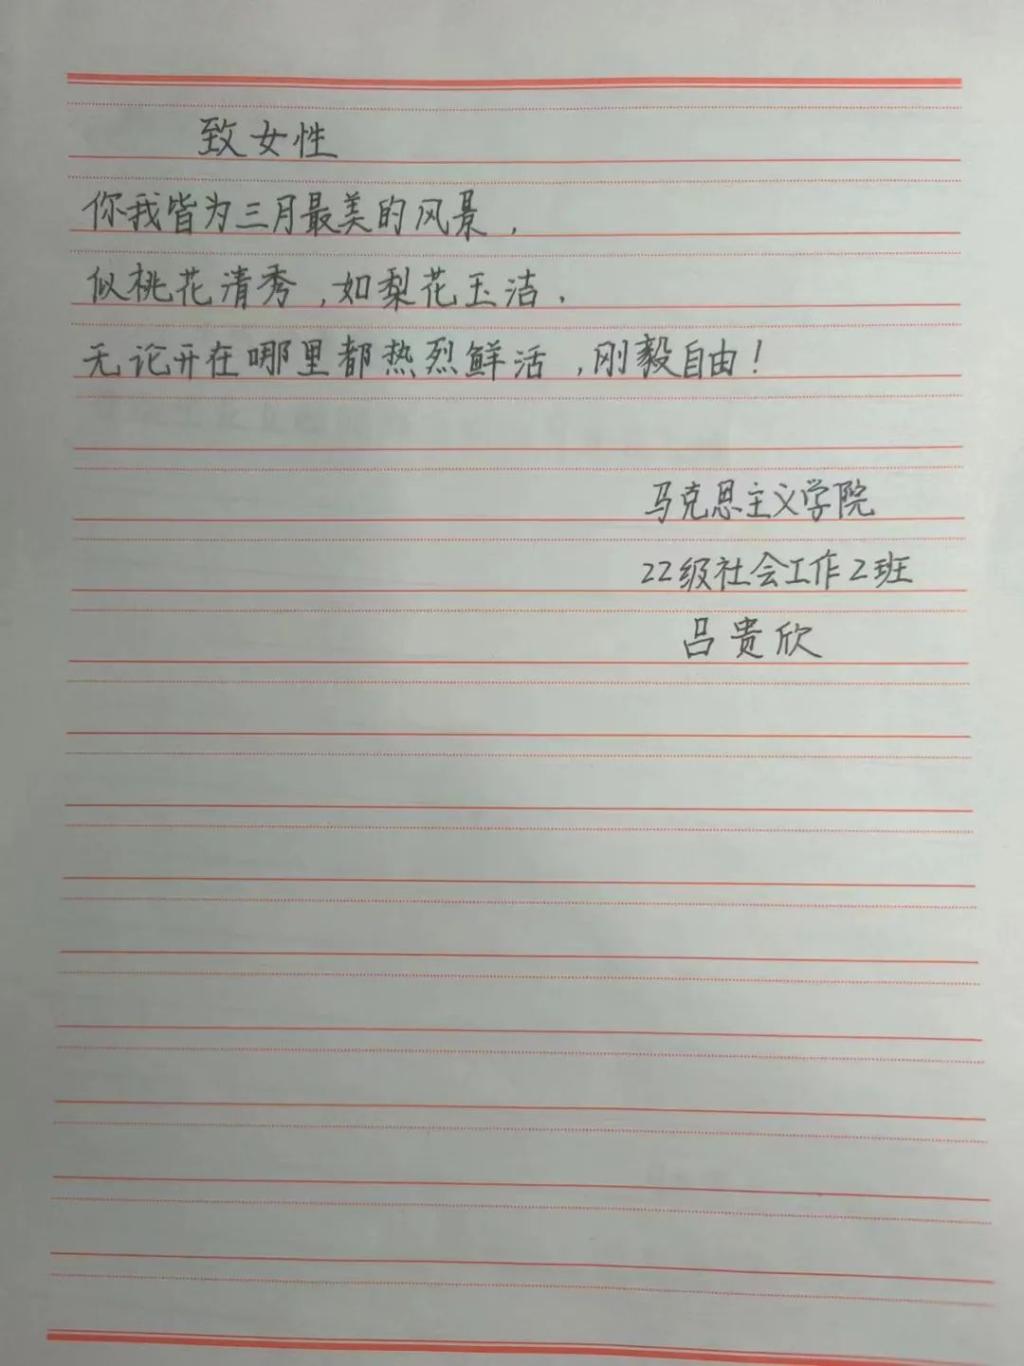 致女性
你我皆为三月最美的风景,
似桃花清秀,如梨花玉洁.
无论开在哪里都热烈鲜活,刚毅自由!
马克思主义学院
22级社会工作2班
吕贵欣